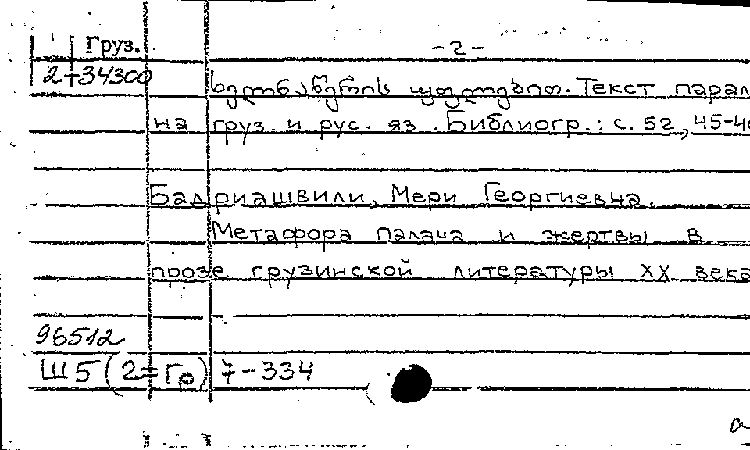 Груз. - 2 -
2-34300
ხელნაწერის უფლებით. Текст парал
на груз. и рус. яз. Библиогр.: с. 52, 45-4
Бадриашвили, Мери Георгиевна.
Метафора палача и жертвы в
прозе грузинской литературы XX века
96512
Ш5(2=Гр)7-334